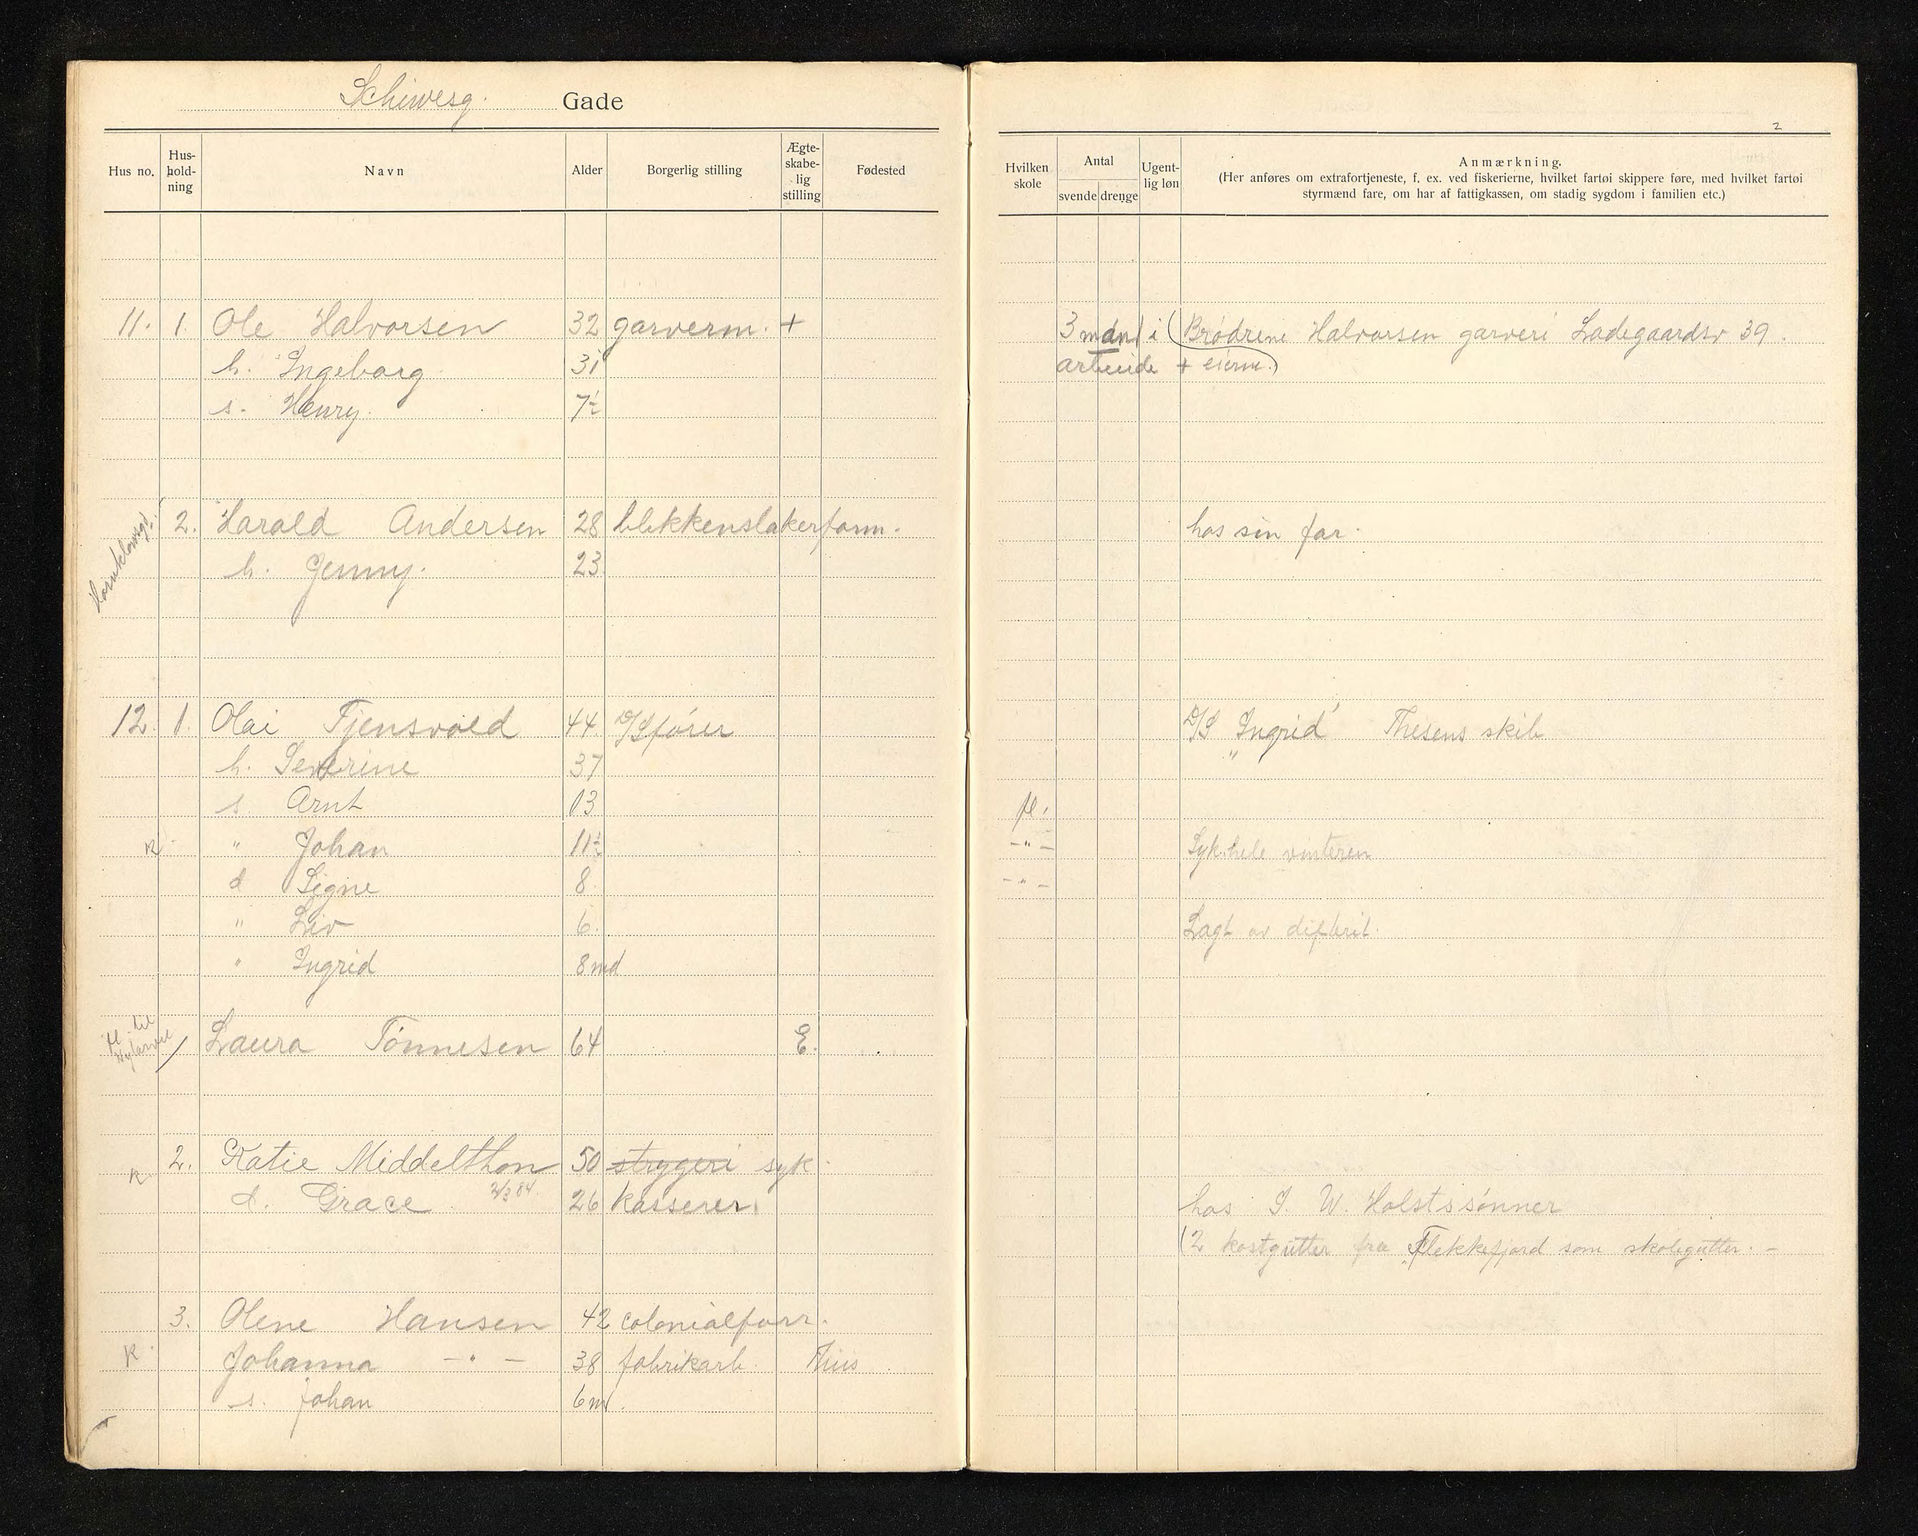 Schiwesg. Gade
2
Hus no. Hus-hold-ning Navn Alder Borgerlig stilling Ægte-skabe-lig stilling Fødested Hvilken skole Antal svende drenge Ugent-lig løn Anmærkning.
(Her anføres om extrafortjeneste, f. ex. ved fiskerierne, hvilket fartøi skippere føre, med hvilket fartøi
styrmænd fare, om har af fattigkassen, om stadig sygdom i familien etc.)
11. 1. Ole Halvorsen 32 garverm. + 3 mdn i (Brødrene Halvorsen garveri Ladegaardsv 39.
h. Ingeborg 31 arbeide + eierne.)
s. Henry. 7½
2. Harald Andersen 28 blekkenslakerform. hos sin far.
h. Jenny. 23
12. 1. Olai Tjensvold 44 D/S fører D/S "Ingrid" Thesens skib
h. Severine 37
s. Arnt 13
K " Johan 11½ - " - Syk hele vinteren
d Signe 8. - " -
" Liv 6. Lagt av difterit.
" Ingrid 8 md
Laura Tønnesen 64 E.
K. 2. Katie Middelthon 50 strygeri syk.
d. Grace 2/3 84. 26 kasserer hos I. W. Holstssønner
(2 kostgutter fra Flekkefjord som skolegutter. -
3. Olene Hansen 42 colonialforr.
K. Johanna - " - 38 fabrikarb. Thiis
s. Johan 6 m.